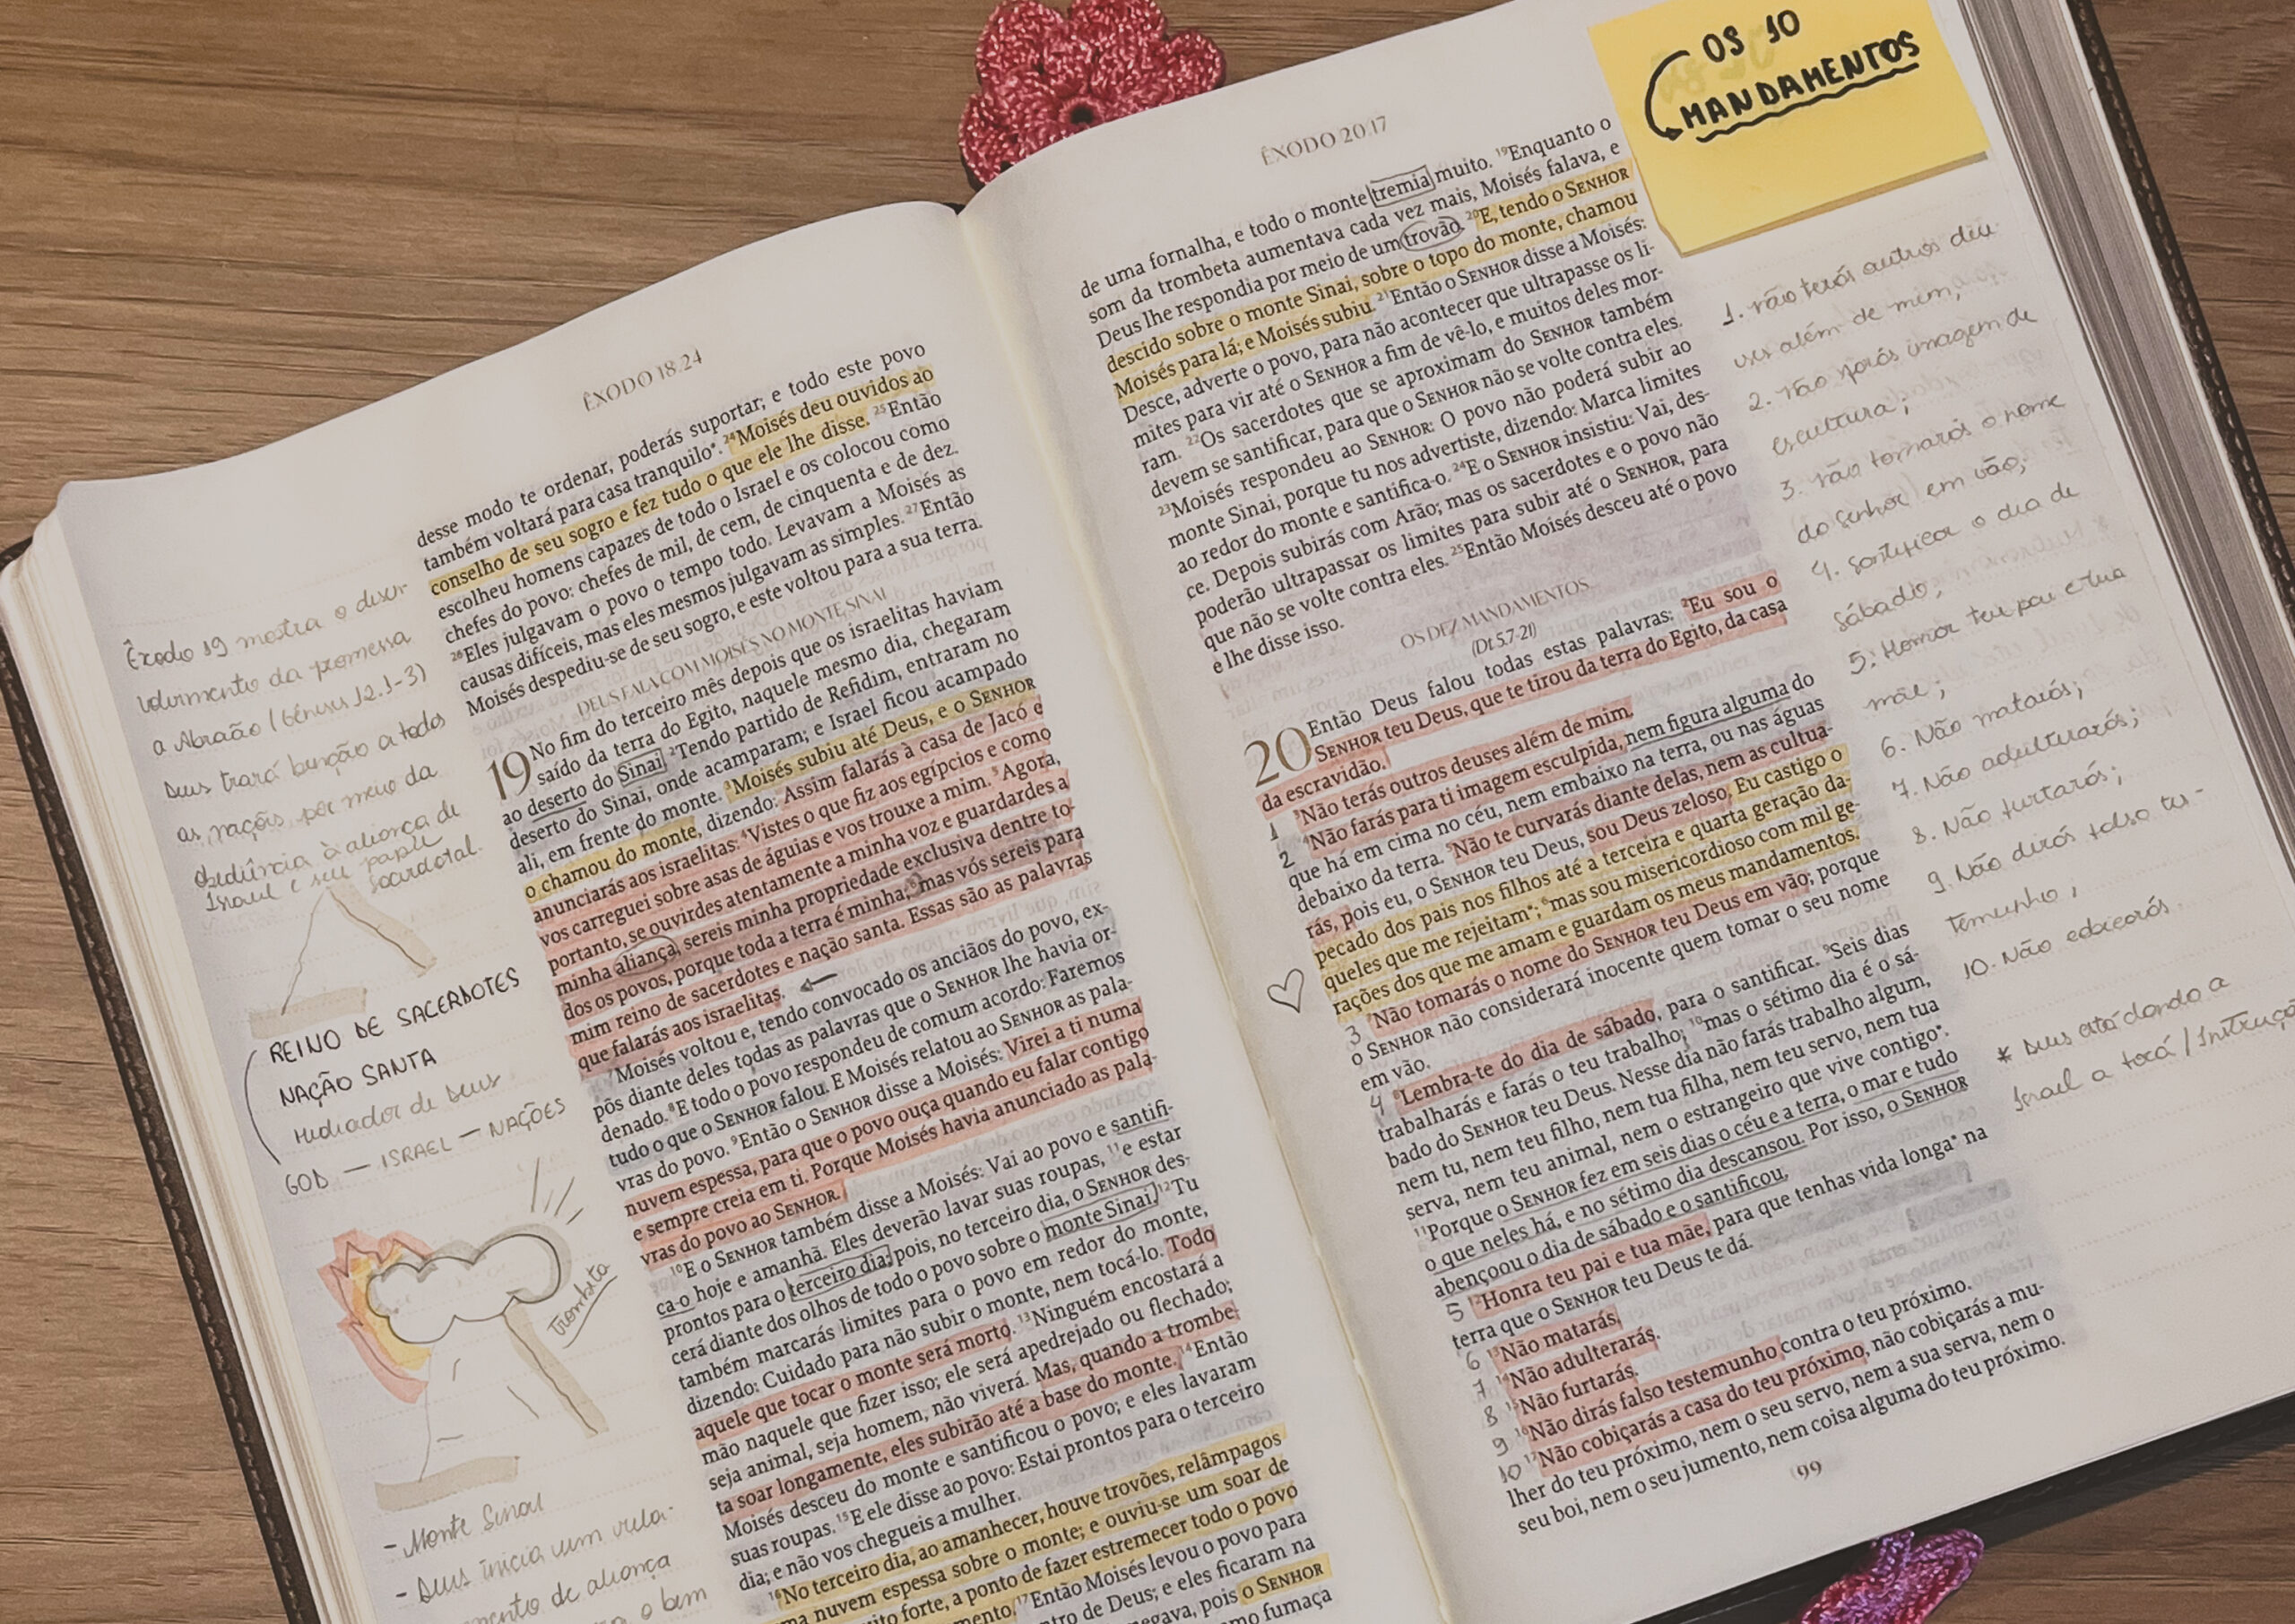 ÊXODO 18.24
desse modo te ordenar, poderás suportar; e todo este povo
também voltará para casa tranquilo*. 24Moisés deu ouvidos ao
conselho de seu sogro e fez tudo o que ele lhe disse. 25Então
escolheu homens capazes de todo o Israel e os colocou como
chefes do povo: chefes de mil, de cem, de cinquenta e de dez.
26Eles julgavam o povo o tempo todo. Levavam a Moisés as
causas difíceis, mas eles mesmos julgavam as simples. 27Então
Moisés despediu-se de seu sogro, e este voltou para a sua terra.
DEUS FALA COM MOISÉS NO MONTE SINAI
19 No fim do terceiro mês depois que os israelitas haviam
saído da terra do Egito, naquele mesmo dia, chegaram
ao deserto do Sinai. 2Tendo partido de Refidim, entraram no
deserto do Sinai, onde acamparam; e Israel ficou acampado
ali, em frente do monte. 3Moisés subiu até Deus, e o SENHOR
o chamou do monte, dizendo: Assim falarás à casa de Jacó e
anunciarás aos israelitas: 4Vistes o que fiz aos egípcios e como
vos carreguei sobre asas de águias e vos trouxe a mim. 5Agora,
portanto, se ouvirdes atentamente a minha voz e guardardes a
minha aliança, sereis minha propriedade exclusiva dentre to-
dos os povos, porque toda a terra é minha; 6mas vós sereis para
mim reino de sacerdotes e nação santa. Essas são as palavras
que falarás aos israelitas.
7Moisés voltou e, tendo convocado os anciãos do povo, ex-
pôs diante deles todas as palavras que o SENHOR lhe havia or-
denado. 8E todo o povo respondeu de comum acordo: Faremos
tudo o que o SENHOR falou. E Moisés relatou ao SENHOR as pala-
vras do povo. 9Então o SENHOR disse a Moisés: Virei a ti numa
nuvem espessa, para que o povo ouça quando eu falar contigo
e sempre creia em ti. Porque Moisés havia anunciado as pala-
vras do povo ao SENHOR.
10E o SENHOR também disse a Moisés: Vai ao povo e santifi-
ca-o hoje e amanhã. Eles deverão lavar suas roupas, 11e estar
prontos para o terceiro dia; pois, no terceiro dia, o SENHOR des-
cerá diante dos olhos de todo o povo sobre o monte Sinai. 12Tu
também marcarás limites para o povo em redor do monte,
dizendo: Cuidado para não subir o monte, nem tocá-lo. Todo
aquele que tocar o monte será morto. 13Ninguém encostará a
mão naquele que fizer isso; ele será apedrejado ou flechado;
seja animal, seja homem, não viverá. Mas, quando a trombe-
ta soar longamente, eles subirão até a base do monte. 14Então
Moisés desceu do monte e santificou o povo; e eles lavaram
suas roupas. 15E ele disse ao povo: Estai prontos para o terceiro
dia; e não vos chegueis a mulher.
16No terceiro dia, ao amanhecer, houve trovões, relâmpagos
uma nuvem espessa sobre o monte; e ouviu-se um soar de
muito forte, a ponto de fazer estremecer todo o povo
17Então Moisés levou o povo para
de Deus; e eles ficaram na
pois o SENHOR
fumaça
Êxodo 19 mostra o desen-
volvimento da promessa
a Abraão (Gênesis 12.1-3)
Deus trará benção a todos
as nações por meio da
obediência à aliança de
Israel e seu papel
sacerdotal.
REINO DE SACERDOTES
NAÇÃO SANTA
Mediador de Deus
GOD — ISRAEL — NAÇÕES
trombeta
- Monte Sinai
- Deus inicia um rela-
de aliança
o bem
ÊXODO 20.17
de uma fornalha, e todo o monte tremia muito. 19Enquanto o
som da trombeta aumentava cada vez mais, Moisés falava, e
Deus lhe respondia por meio de um trovão. 20E, tendo o SENHOR
descido sobre o monte Sinai, sobre o topo do monte, chamou
Moisés para lá; e Moisés subiu. 21Então o SENHOR disse a Moisés:
Desce, adverte o povo, para não acontecer que ultrapasse os li-
mites para vir até o SENHOR a fim de vê-lo, e muitos deles mor-
ram. 22Os sacerdotes que se aproximam do SENHOR também
devem se santificar, para que o SENHOR não se volte contra eles.
23Moisés respondeu ao SENHOR: O povo não poderá subir ao
monte Sinai, porque tu nos advertiste, dizendo: Marca limites
ao redor do monte e santifica-o. 24E o SENHOR insistiu: Vai, des-
ce. Depois subirás com Arão; mas os sacerdotes e o povo não
poderão ultrapassar os limites para subir até o SENHOR, para
que não se volte contra eles. 25Então Moisés desceu até o povo
e lhe disse isso.
OS DEZ MANDAMENTOS
(Dt 5.7-21)
20 Então Deus falou todas estas palavras: 2Eu sou o
SENHOR teu Deus, que te tirou da terra do Egito, da casa
da escravidão.
1 3Não terás outros deuses além de mim.
2 4Não farás para ti imagem esculpida, nem figura alguma do
que há em cima no céu, nem embaixo na terra, ou nas águas
debaixo da terra. 5Não te curvarás diante delas, nem as cultua-
rás, pois eu, o SENHOR teu Deus, sou Deus zeloso. Eu castigo o
pecado dos pais nos filhos até a terceira e quarta geração da-
queles que me rejeitam*; 6mas sou misericordioso com mil ge-
rações dos que me amam e guardam os meus mandamentos.
3 7Não tomarás o nome do SENHOR teu Deus em vão; porque
o SENHOR não considerará inocente quem tomar o seu nome
em vão.
4 8Lembra-te do dia de sábado, para o santificar. 9Seis dias
trabalharás e farás o teu trabalho; 10mas o sétimo dia é o sá-
bado do SENHOR teu Deus. Nesse dia não farás trabalho algum,
nem tu, nem teu filho, nem tua filha, nem teu servo, nem tua
serva, nem teu animal, nem o estrangeiro que vive contigo*.
11Porque o SENHOR fez em seis dias o céu e a terra, o mar e tudo
o que neles há, e no sétimo dia descansou. Por isso, o SENHOR
abençoou o dia de sábado e o santificou.
5 12Honra teu pai e tua mãe, para que tenhas vida longa* na
terra que o SENHOR teu Deus te dá.
6 13Não matarás.
7 14Não adulterarás.
8 15Não furtarás.
9 16Não dirás falso testemunho contra o teu próximo.
10 17Não cobiçarás a casa do teu próximo, não cobiçarás a mu-
lher do teu próximo, nem o seu servo, nem a sua serva, nem o
seu boi, nem o seu jumento, nem coisa alguma do teu próximo.
99
OS 10
MANDAMENTOS
1. não terás outros deu-
ses além de mim;
2. Não farás imagem de
escultura;
3. não tomarás o nome
do Senhor em vão;
4. Santificar o dia de
sábado;
5. Honrar teu pai e tua
mãe;
6. Não matarás;
7. Não adulterarás;
8. Não furtarás;
9. Não dirás falso tes-
temunho;
10. Não cobiçarás.
* Deus está dando a
Israel a torá / Instruçã